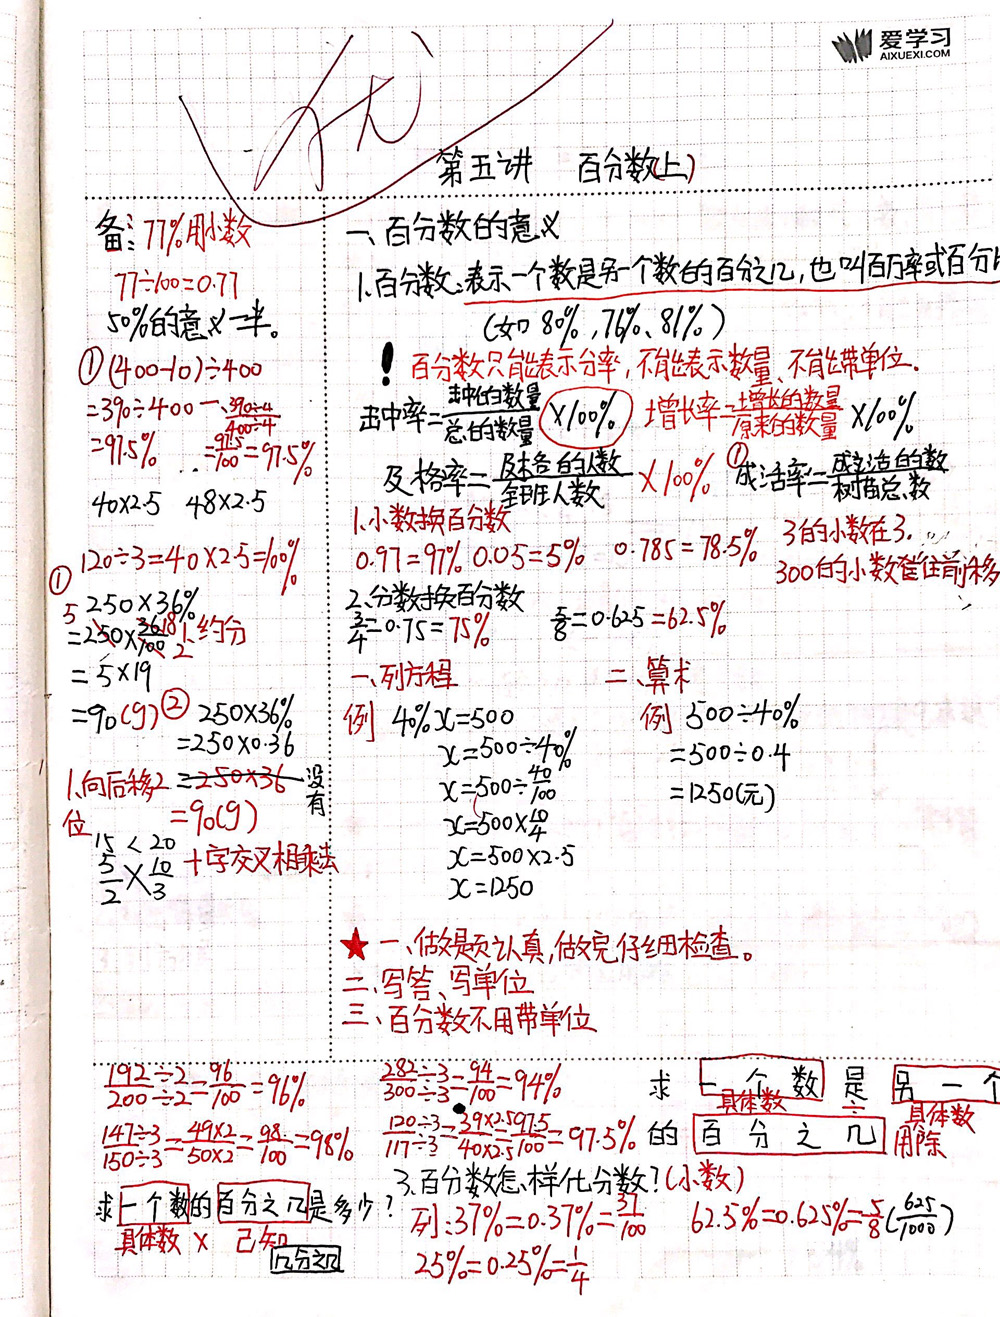 爱学习
AIXUEXI.COM
优
第五讲 百分数(上)
备: 77%用小数
77÷100=0.77
50%的意义一半。
①(400-10)÷400
=390÷400 — 390÷4/400÷4
=97.5% =97.5/100=97.5%
40×2.5 48×2.5
120÷3=40×2.5=100%
① 250×36%
=250×36/100 约分
5 18 1 2
=5×19
=90(g) ② 250×36%
=250×0.36
=250×36 没有
=90(g)
1.向后移2位
15 < 20
5/2 × 10/3 十字交叉相乘法
一、百分数的意义
1.百分数:表示一个数是另一个数的百分之几,也叫百分率或百分比
(如80%,76%、81%)
! 百分数只能表示分率,不能表示数量、不能带单位.
击中率=击中的数量/总的数量 ×100% 增长率=增长的数量/原来的数量 ×100%
及格率=及格的人数/全班人数 ×100% ①成活率=成活的数/树苗总数
1.小数换百分数
0.97=97% 0.05=5% 0.785=78.5% 3的小数在3.
300的小数往前移
2.分数换百分数
3/4=0.75=75% 5/8=0.625=62.5%
一、列方程 二、算术
例 40%x=500 例 500÷40%
x=500÷40% =500÷0.4
x=500÷40/100 =1250(元)
x=500×10/4
x=500×2.5
x=1250
★ 一、做题认真,做完仔细检查。
二、写答、写单位
三、百分数不用带单位
192÷2/200÷2=96/100=96% 282÷3/300÷3=94/100=94%
147÷3/150÷3=49×2/50×2=98/100=98% 120÷3/117÷3=39×2.5/40×2.5=97.5/100=97.5%
求一个数是另一个
具体数 ÷ 具体数
的百分之几 用除
求一个数的百分之几是多少?
具体数 × 已知
几分之几
3.百分数怎样化分数?(小数)
列:37%=0.37%=37/100 62.5%=0.625%=5/8(625/1000)
25%=0.25%=1/4